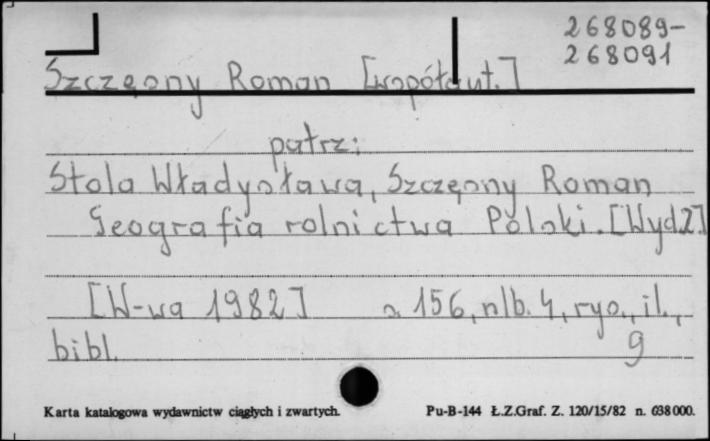 268089-
268091
Szczęsny Roman [współaut.]
patrz:
Stola Władysława, Szczęsny Roman
Geografia rolnictwa Polski. [Wyd.2]
[W-wa 1982] s. 156, nlb. 4, rys., il.,
bibl. 9
Karta katalogowa wydawnictw ciągłych i zwartych. Pu-B-144 Ł.Z.Graf. Z. 120/15/82 n. 638000.